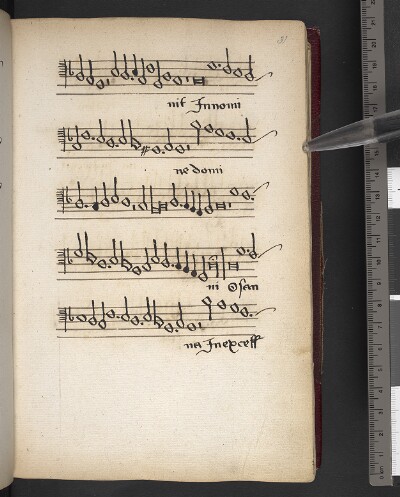 nit Innomi
ne domi
ni Osan
na Inexcelſ